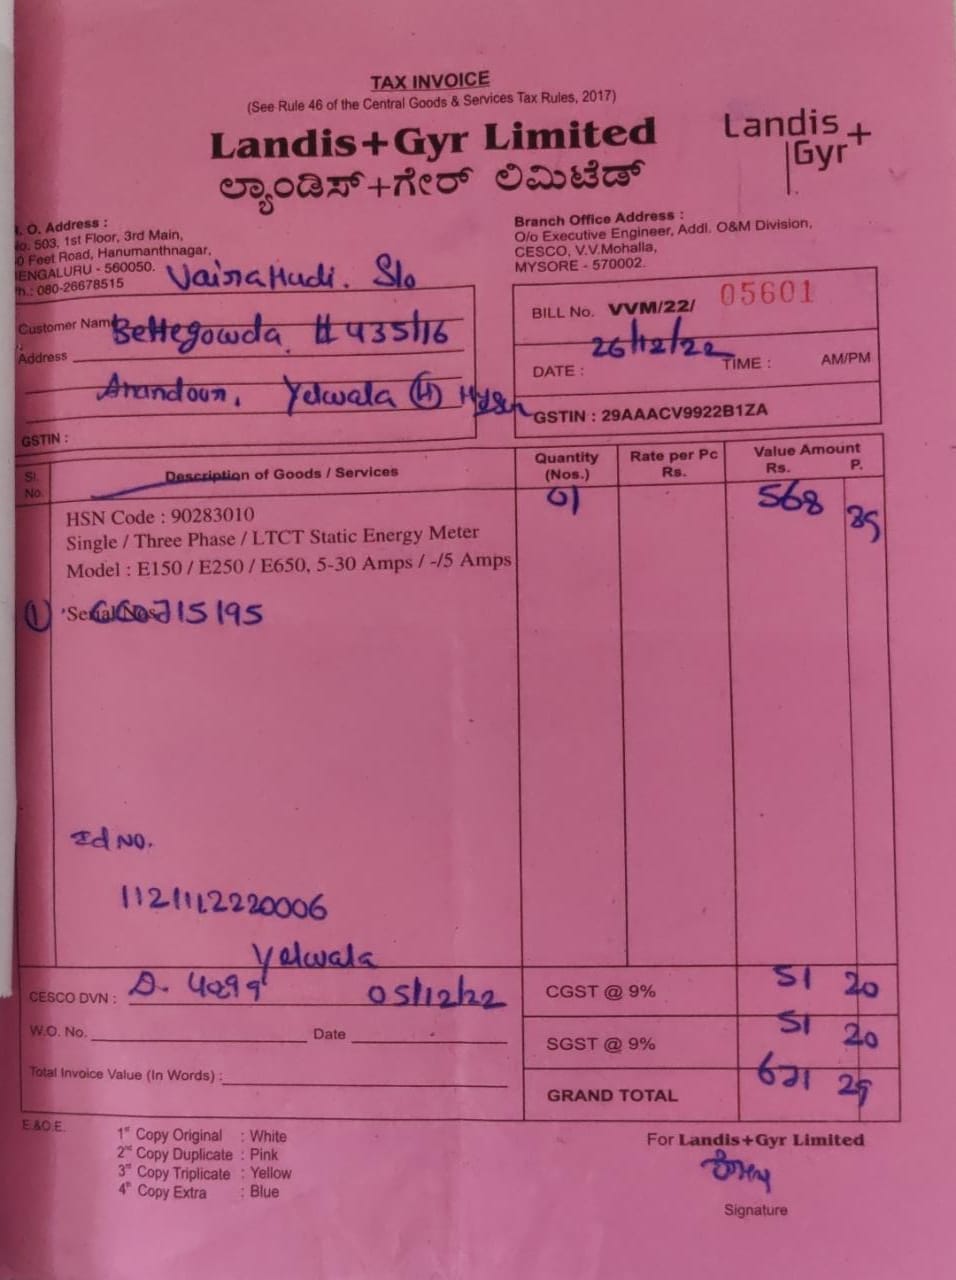 TAX INVOICE
(See Rule 46 of the Central Goods & Services Tax Rules, 2017)
Landis+Gyr Limited
ಲ್ಯಾಂಡಿಸ್+ಗೇರ್ ಲಿಮಿಟೆಡ್
Landis
Gyr+
O. Address :
No. 503, 1st Floor, 3rd Main,
0 Feet Road, Hanumanthnagar,
BENGALURU - 560050.
Ph.: 080-26678515
Branch Office Address :
O/o Executive Engineer, Addl. O&M Division,
CESCO, V.V.Mohalla,
MYSORE - 570002.
S/o
Customer Name Bettegowda # 435/16
Address
Yelwala (H)
GSTIN :
BILL No. VVM/22/ 05601
DATE : 26/12/22 TIME : AM/PM
GSTIN : 29AAACV9922B1ZA
Sl. No. Description of Goods / Services Quantity (Nos.) Rate per Pc Rs. Value Amount Rs. P.
01 568 85
HSN Code : 90283010
Single / Three Phase / LTCT Static Energy Meter
Model : E150 / E250 / E650, 5-30 Amps / -/5 Amps
① Serial Nos.
Id NO.
1121112220006
Yelwala
CESCO DVN : D. 4299 05/12/22
W.O. No. Date
Total Invoice Value (In Words) :
CGST @ 9% 51 20
SGST @ 9% 51 20
GRAND TOTAL 671 25
E.&O.E.
1st Copy Original : White
2nd Copy Duplicate : Pink
3rd Copy Triplicate : Yellow
4th Copy Extra : Blue
For Landis+Gyr Limited
Signature